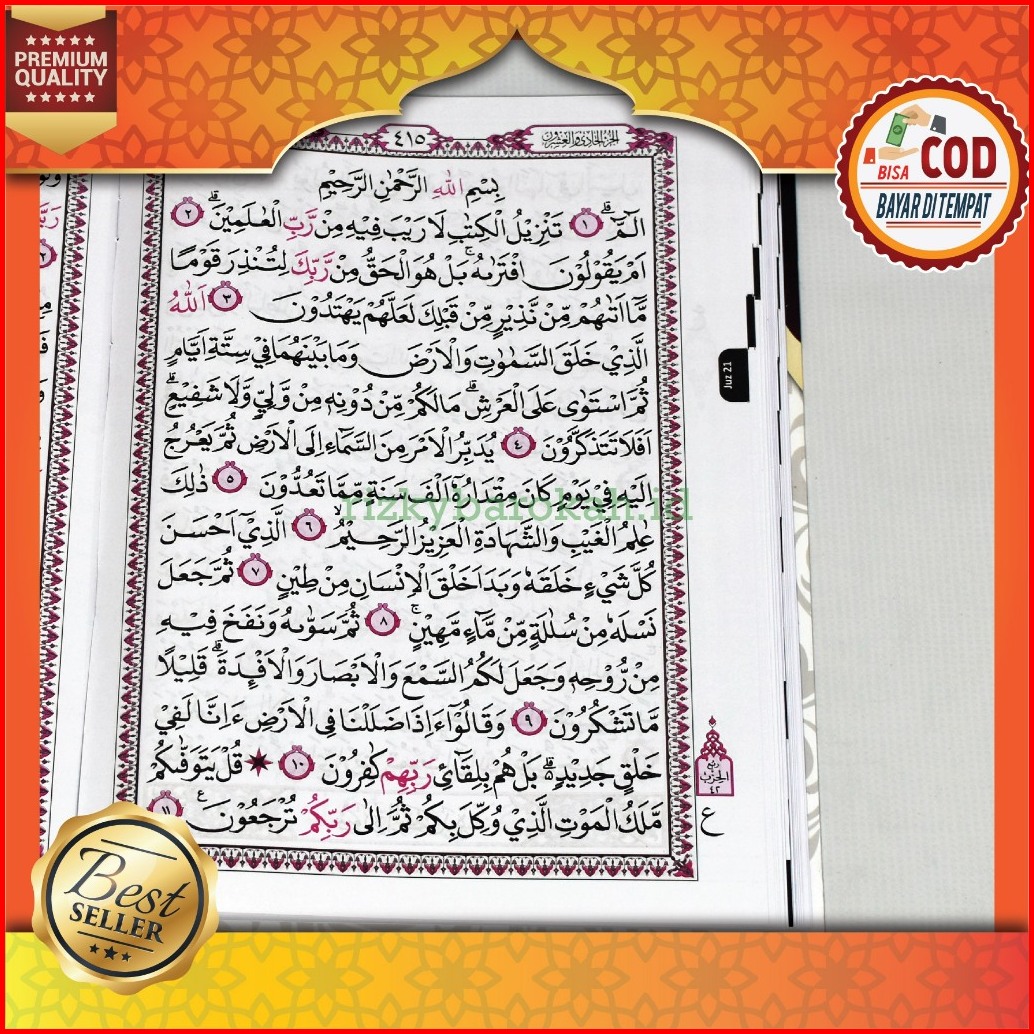 PREMIUM
QUALITY
BISA
COD
BAYAR DI TEMPAT
٤١٥
الجزء الحادي والعشرون
بِسْمِ اللّٰهِ الرَّحْمٰنِ الرَّحِيْمِ
الۤمّۤ ۗ ١ تَنْزِيْلُ الْكِتٰبِ لَا رَيْبَ فِيْهِ مِنْ رَّبِّ الْعٰلَمِيْنَ ۗ ٢
اَمْ يَقُوْلُوْنَ افْتَرٰىهُ ۚ بَلْ هُوَ الْحَقُّ مِنْ رَّبِّكَ لِتُنْذِرَ قَوْمًا
مَّآ اَتٰىهُمْ مِّنْ نَّذِيْرٍ مِّنْ قَبْلِكَ لَعَلَّهُمْ يَهْتَدُوْنَ ٣ اَللّٰهُ
الَّذِيْ خَلَقَ السَّمٰوٰتِ وَالْاَرْضَ وَمَا بَيْنَهُمَا فِيْ سِتَّةِ اَيَّامٍ
ثُمَّ اسْتَوٰى عَلَى الْعَرْشِ ۗ مَا لَكُمْ مِّنْ دُوْنِهٖ مِنْ وَّلِيٍّ وَّلَا شَفِيْعٍ ۗ
اَفَلَا تَتَذَكَّرُوْنَ ٤ يُدَبِّرُ الْاَمْرَ مِنَ السَّمَاۤءِ اِلَى الْاَرْضِ ثُمَّ يَعْرُجُ
اِلَيْهِ فِيْ يَوْمٍ كَانَ مِقْدَارُهٗٓ اَلْفَ سَنَةٍ مِّمَّا تَعُدُّوْنَ ٥ ذٰلِكَ
عٰلِمُ الْغَيْبِ وَالشَّهَادَةِ الْعَزِيْزُ الرَّحِيْمُ ۙ ٦ الَّذِيْٓ اَحْسَنَ
كُلَّ شَيْءٍ خَلَقَهٗ وَبَدَاَ خَلْقَ الْاِنْسَانِ مِنْ طِيْنٍ ٧ ثُمَّ جَعَلَ
نَسْلَهٗ مِنْ سُلٰلَةٍ مِّنْ مَّاۤءٍ مَّهِيْنٍ ۚ ٨ ثُمَّ سَوّٰىهُ وَنَفَخَ فِيْهِ
مِنْ رُّوْحِهٖ وَجَعَلَ لَكُمُ السَّمْعَ وَالْاَبْصَارَ وَالْاَفْـِٕدَةَ ۗ قَلِيْلًا
مَّا تَشْكُرُوْنَ ٩ وَقَالُوْٓا ءَاِذَا ضَلَلْنَا فِى الْاَرْضِ ءَاِنَّا لَفِيْ
خَلْقٍ جَدِيْدٍ ەۗ بَلْ هُمْ بِلِقَاۤئِ رَبِّهِمْ كٰفِرُوْنَ ١٠ ۞ قُلْ يَتَوَفّٰىكُمْ
مَّلَكُ الْمَوْتِ الَّذِيْ وُكِّلَ بِكُمْ ثُمَّ اِلٰى رَبِّكُمْ تُرْجَعُوْنَ ࣖ ١١
ربع
الحزب
٤٢
ع
Juz 21
rizkybarokah.id
Best
SELLER